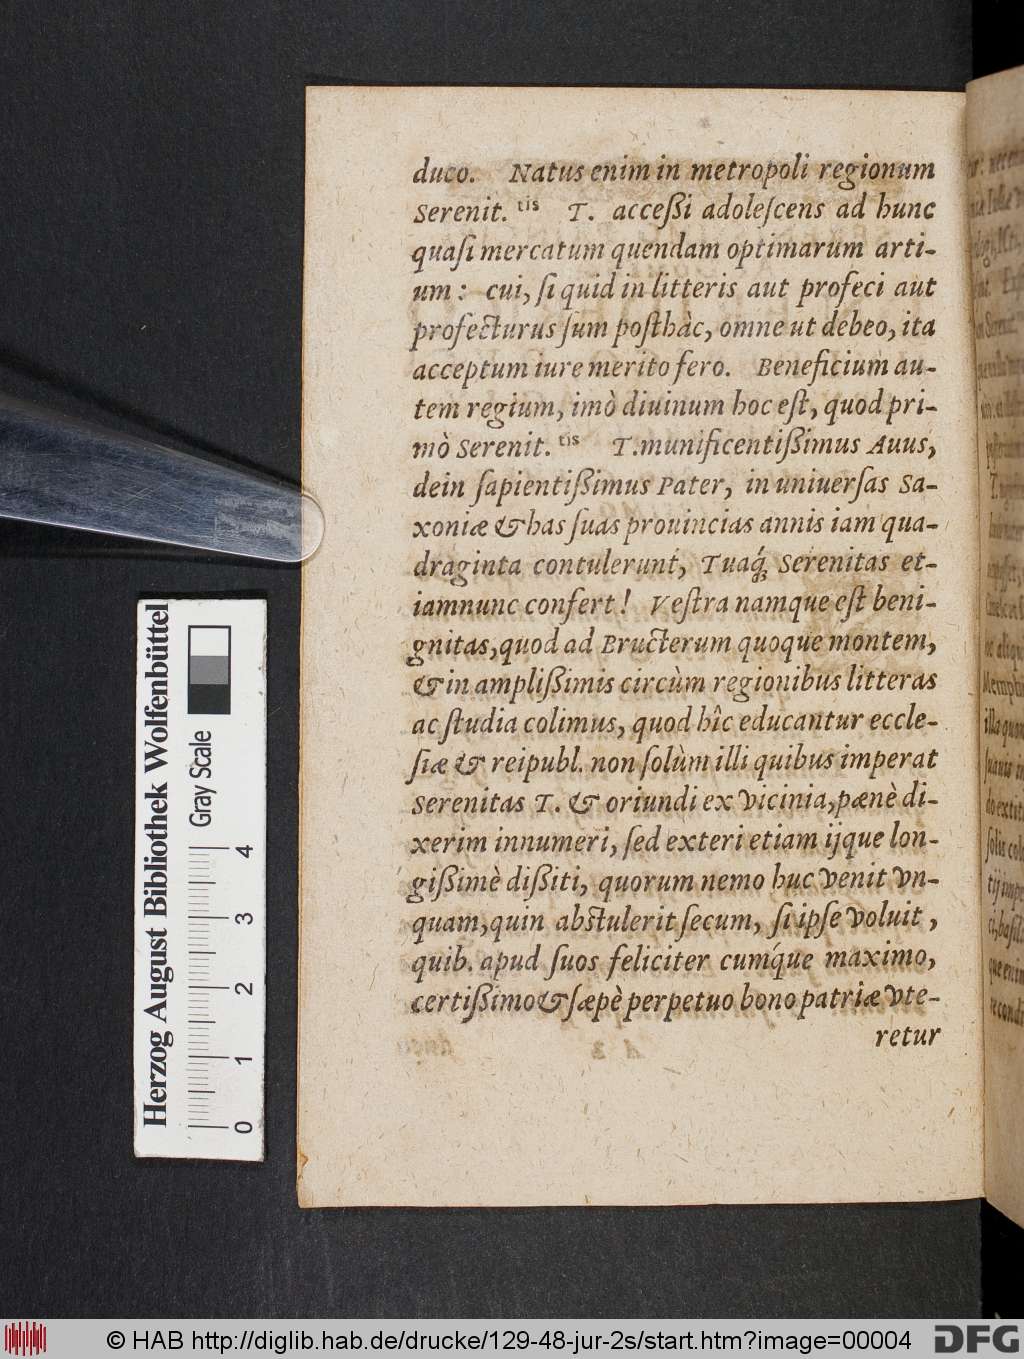 duco. Natus enim in metropoli regionum
Serenit.tis T. acceßi adoleſcens ad hunc
quaſi mercatum quendam optimarum arti-
um: cui, ſi quid in litteris aut profeci aut
profecturus ſum poſthàc, omne ut debeo, ita
acceptum iure merito fero. Beneficium au-
tem regium, imò diuinum hoc eſt, quod pri-
mò Serenit.tis T. munificentißimus Auus,
dein ſapientißimus Pater, in uniuerſas Sa-
xoniæ & has ſuas prouincias annis iam qua-
draginta contulerunt, Tuaq́; Serenitas et-
iamnunc confert! Veſtra namque eſt beni-
gnitas, quod ad Bructerum quoque montem,
& in amplißimis circùm regionibus litteras
ac ſtudia colimus, quod hîc educantur eccle-
ſiæ & reipubl. non ſolùm illi quibus imperat
Serenitas T. & oriundi ex vicinia, pænè di-
xerim innumeri, ſed exteri etiam ijque lon-
gißimè dißiti, quorum nemo huc venit vn-
quam, quin abſtulerit ſecum, ſi ipſe voluit,
quib. apud ſuos feliciter cuḿque maximo,
certißimo & ſæpè perpetuo bono patriæ vte-
retur
Herzog August Bibliothek Wolfenbüttel
Gray Scale
0 1 2 3 4
© HAB http://diglib.hab.de/drucke/129-48-jur-2s/start.htm?image=00004
DFG